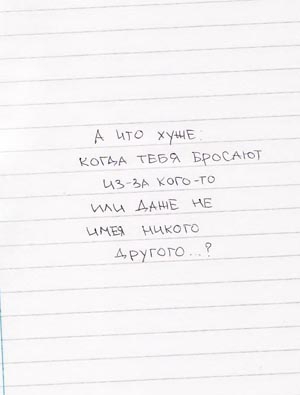 А ЧТО ХУЖЕ:
КОГДА ТЕБЯ БРОСАЮТ
ИЗ-ЗА КОГО-ТО
ИЛИ ДАЖЕ НЕ
ИМЕЯ НИКОГО
ДРУГОГО...?